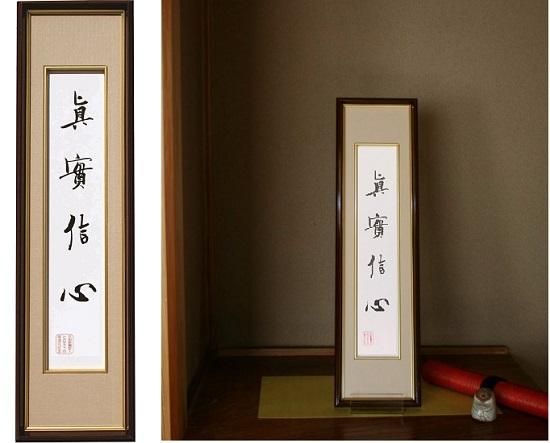 眞實信心
眞實信心